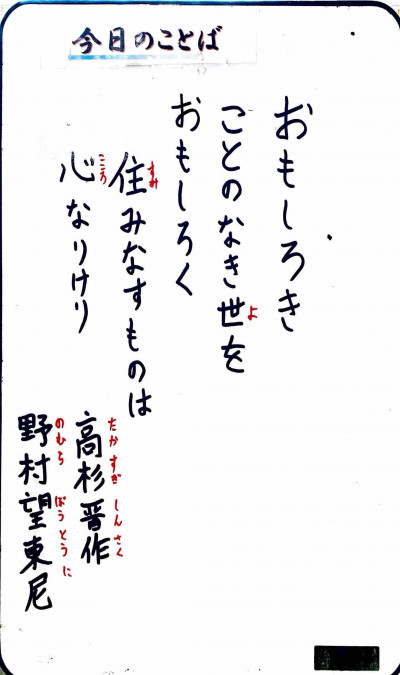 今日のことば
おもしろき
ことのなき世を
よ
おもしろく
住みなすものは
すみ
心なりけり
こころ
高杉晋作
たかすぎしんさく
野村望東尼
のむらぼうとうに